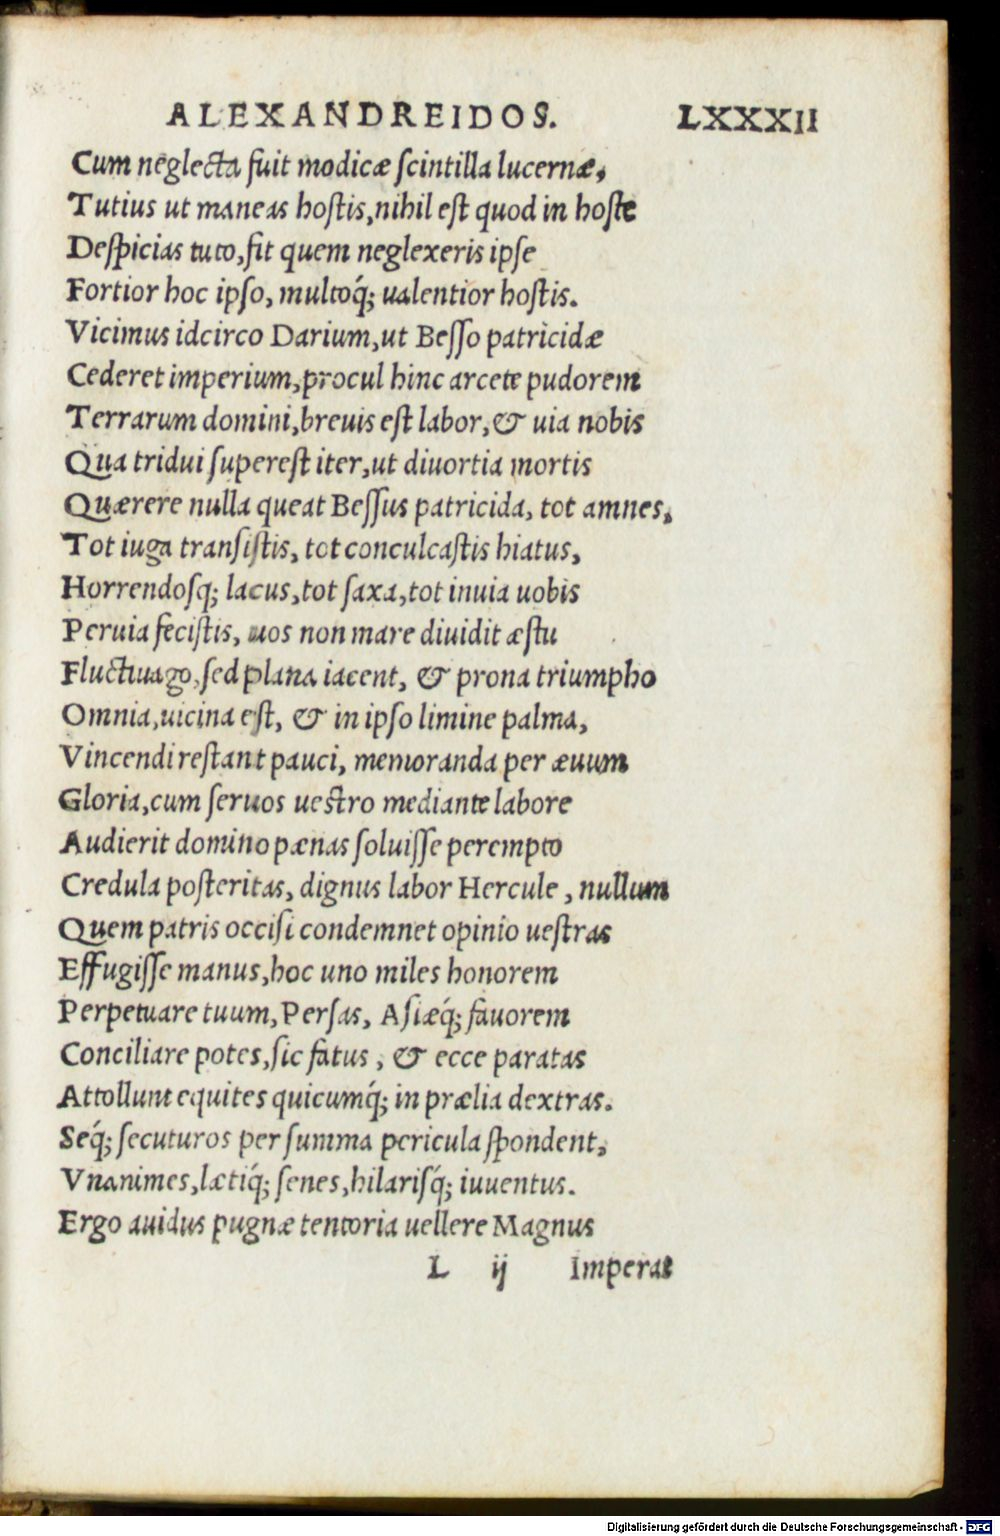 ALEXANDREIDOS. LXXXII
Cum neglecta fuit modicæ scintilla lucernæ,
Tutius ut maneas hostis, nihil est quod in hoste
Despicias tuto, fit quem neglexeris ipse
Fortior hoc ipso, multoq́; ualentior hostis.
Vicimus idcirco Darium, ut Besso patricidæ
Cederet imperium, procul hinc arcete pudorem
Terrarum domini, breuis est labor, & uia nobis
Qua tridui superest iter, ut diuortia mortis
Quærere nulla queat Bessus patricida, tot amnes,
Tot iuga transistis, tot conculcastis hiatus,
Horrendosq; lacus, tot saxa, tot inuia uobis
Peruia fecistis, uos non mare diuidit æstu
Fluctiuago, sed plana iacent, & prona triumpho
Omnia, uicina est, & in ipso limine palma,
Vincendi restant pauci, memoranda per æuum
Gloria, cum seruos uestro mediante labore
Audierit domino pænas soluisse perempto
Credula posteritas, dignus labor Hercule, nullum
Quem patris occisi condemnet opinio uestras
Effugisse manus, hoc uno miles honorem
Perpetuare tuum, Persas, Asiæq́; fauorem
Conciliare potes, sic fatus, & ecce paratas
Attollunt equites quicumq́; in prælia dextras.
Seq́; secuturos per summa pericula spondent,
Vnanimes, lætiq́; senes, hilarisq́; iuuentus.
Ergo auidus pugnæ tentoria uellere Magnus
L ij Imperat
Digitalisierung gefördert durch die Deutsche Forschungsgemeinschaft - DFG